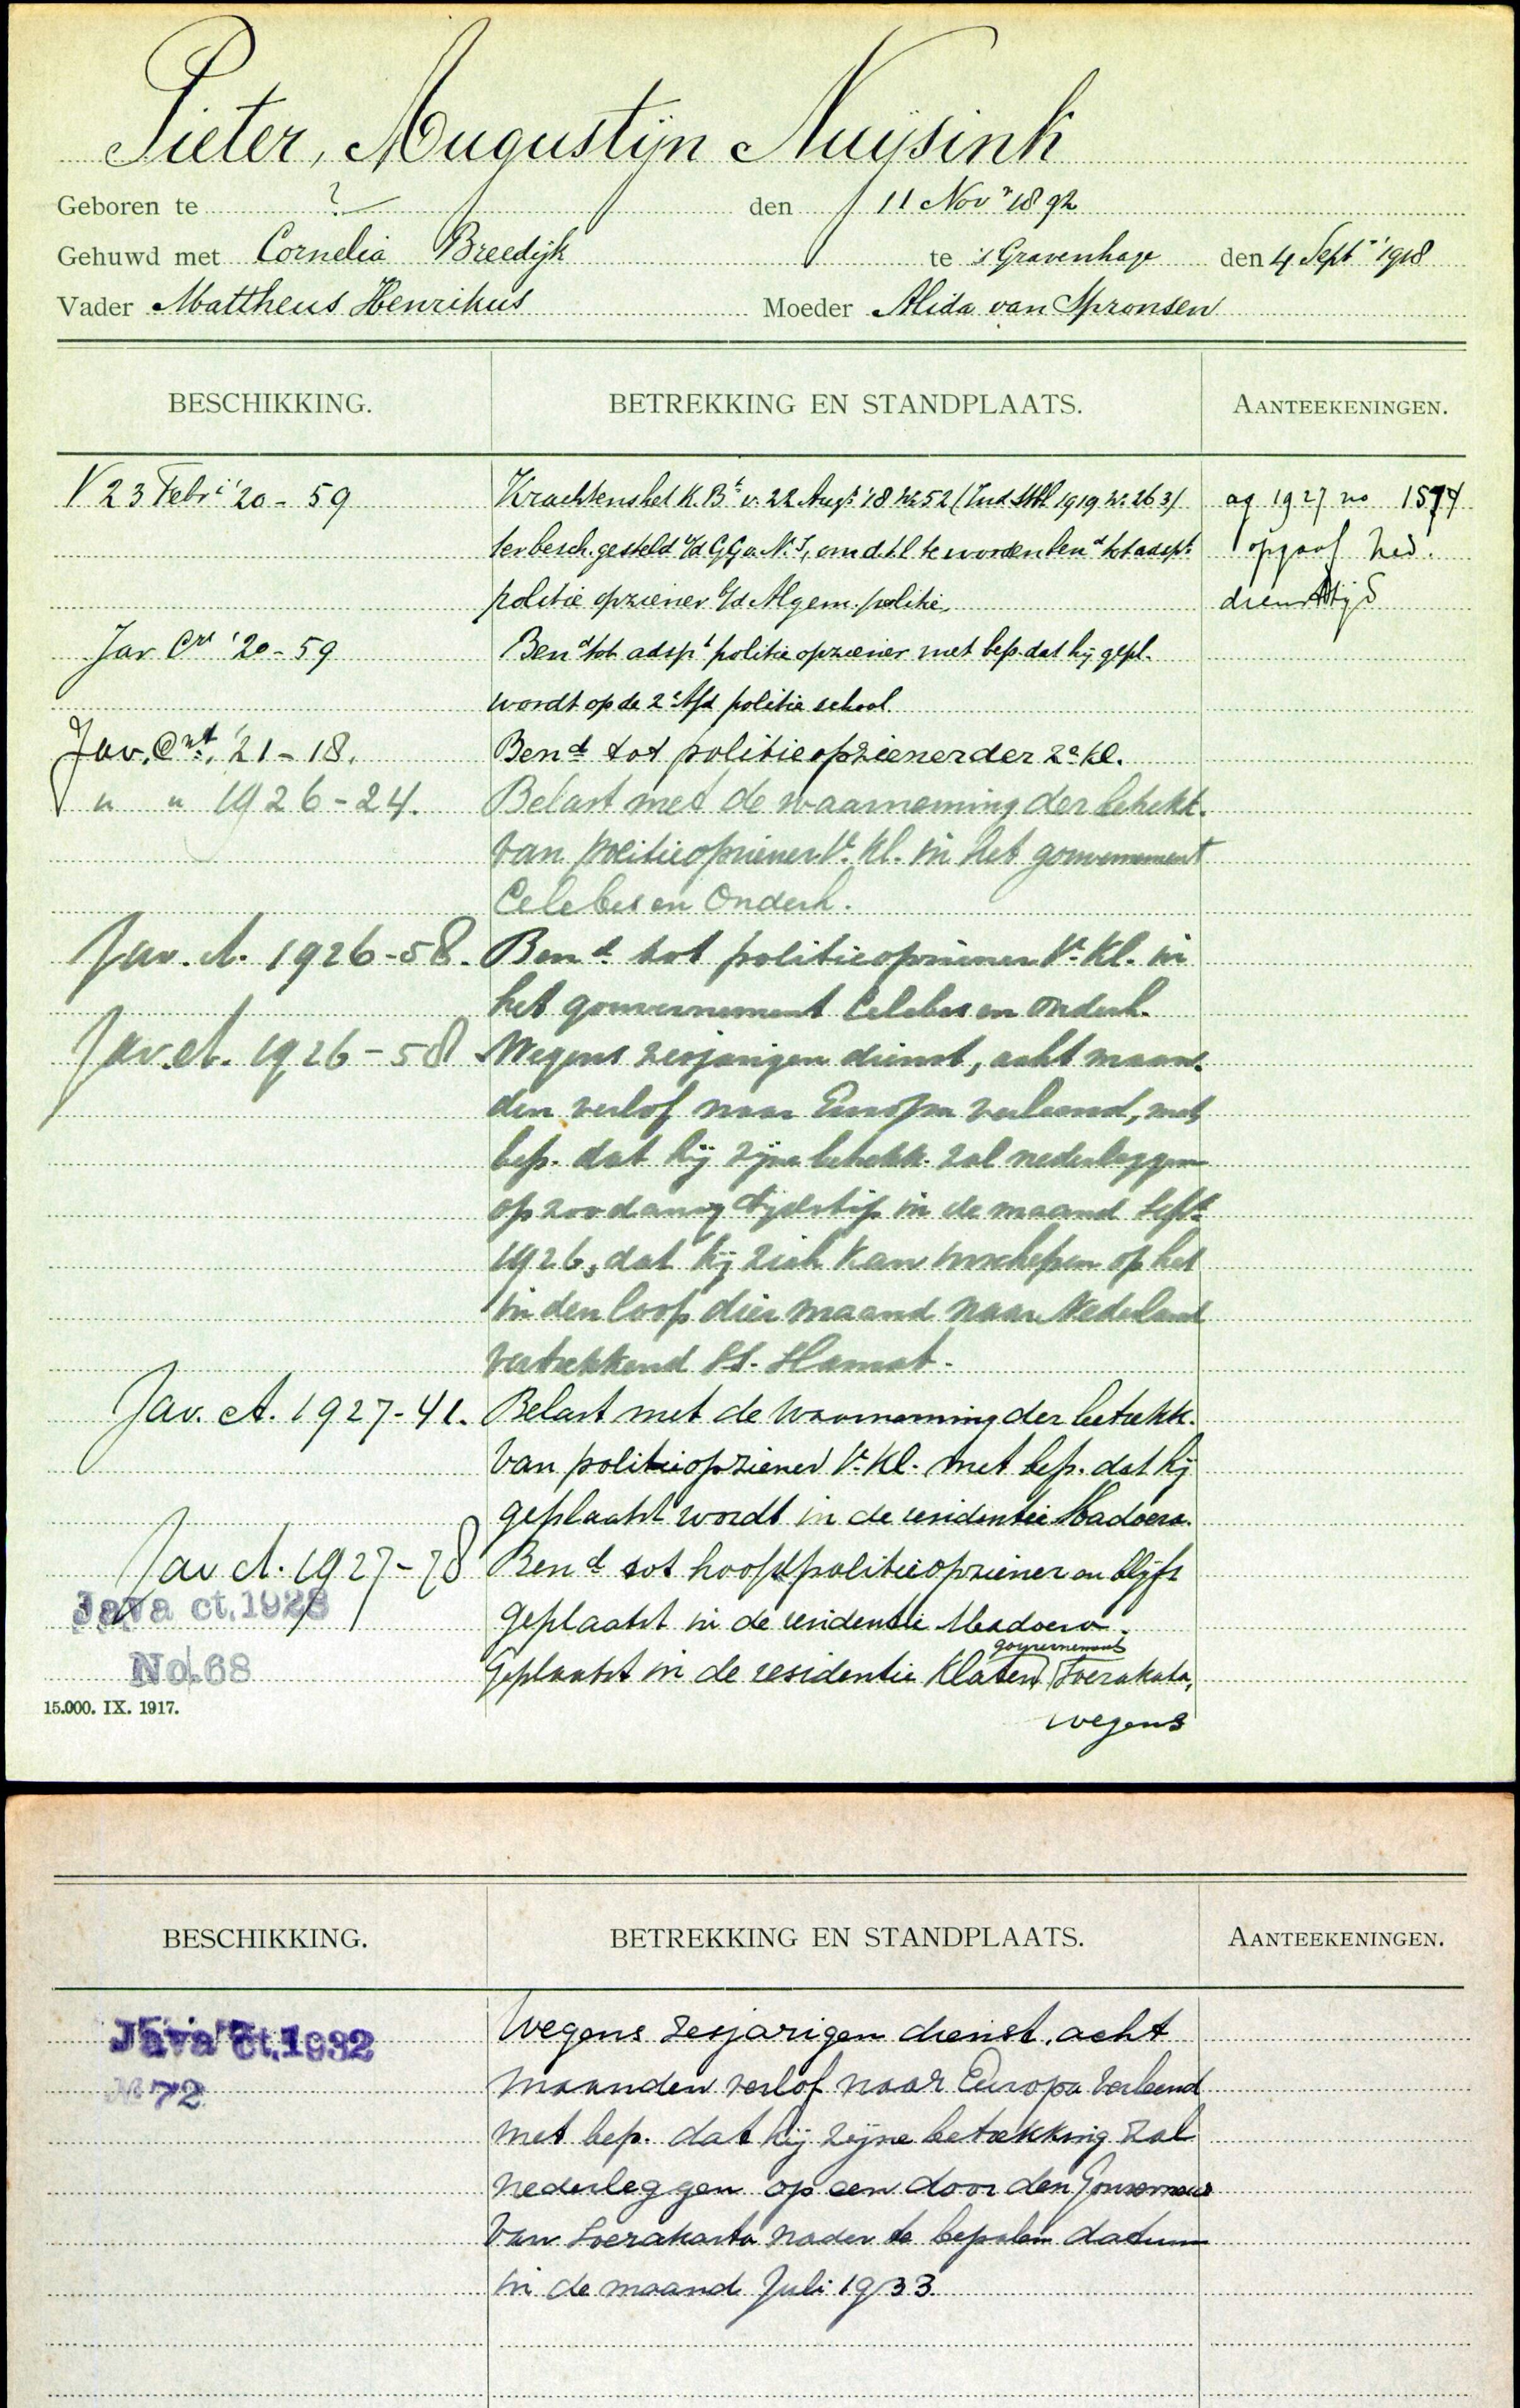 Pieter, Augustijn Nuijsink
Geboren te ? den 11 Novr 1892
Gehuwd met Cornelia Breedijk te 's Gravenhage den 4 Septr 1918
Vader Mattheus Henrikus Moeder Alida van Spronsen
BESCHIKKING. BETREKKING EN STANDPLAATS. AANTEEKENINGEN.
V 23 Febri '20 - 59 Krachtens het K.Bt v. 22 Augs '18 No 52 (Ind Stbl 1919 No 263) ag 1927 no 1574
ter besch. gesteld v/d GG v. N.I, om d.t.l te worden bend tot adspt opgaaf Ned.
politie opziener b/d Algem. politie, diensttijd
Jav Crt '20 - 59 Bend tot adspt politie opziener met bep. dat hij gepl.
wordt op de 2e Afd politie school.
Jav. Crt. '21 - 18. Bend tot politieopziener der 2e kl.
" " 1926 - 24. Belast met de waarneming der betrekk.
van politieopziener 1e kl. in het gouvernement
Celebes en Onderh.
Jav. ct. 1926 - 58. Bend tot politieopziener 1e Kl. in
het gouvernement Celebes en onderh.
Jav. ct. 1926 - 58 Wegens zesjarigen dienst, acht maan-
den verlof naar Europa verleend, met
bep. dat hij zijne betrekk. zal nederleggen
op zoodanig tijdstip in de maand Septr
1926, dat hij zich kan inschepen op het
in den loop dier maand naar Nederland
vertrekkend st. Slamat.
Jav. ct. 1927 - 41. Belast met de waarneming der betrekk.
van politieopziener 1e Kl. met bep. dat hij
geplaatst wordt in de residentie Madoera.
Jav ct. 1927 - 78 Bend tot hoofdpolitieopziener en blijft
Java ct. 1928 geplaatst in de residentie Madoera.
gouvernement
No. 68 Geplaatst in de residentie Klaten Soerakata,
15.000. IX. 1917.
wegens
BESCHIKKING. BETREKKING EN STANDPLAATS. AANTEEKENINGEN.
Java ct. 1932 Wegens zesjarigen dienst, acht
No 72 maanden verlof naar Europa verleend
met bep. dat hij zijne betrekking zal
nederleggen op een door den Gouverneur
van Soerakarta nader te bepalen datum
in de maand Juli 1933.